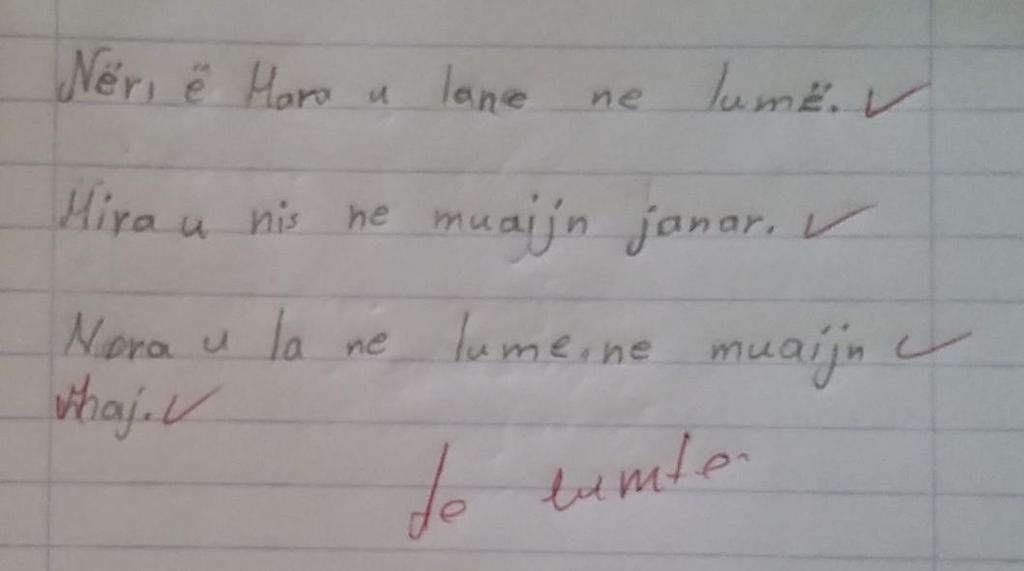 Nëri ë Mara u lane ne lumë.
Mira u nis ne muajjn janar.
Nora u la ne lume.ne muaijn
Maj.
Je lumte